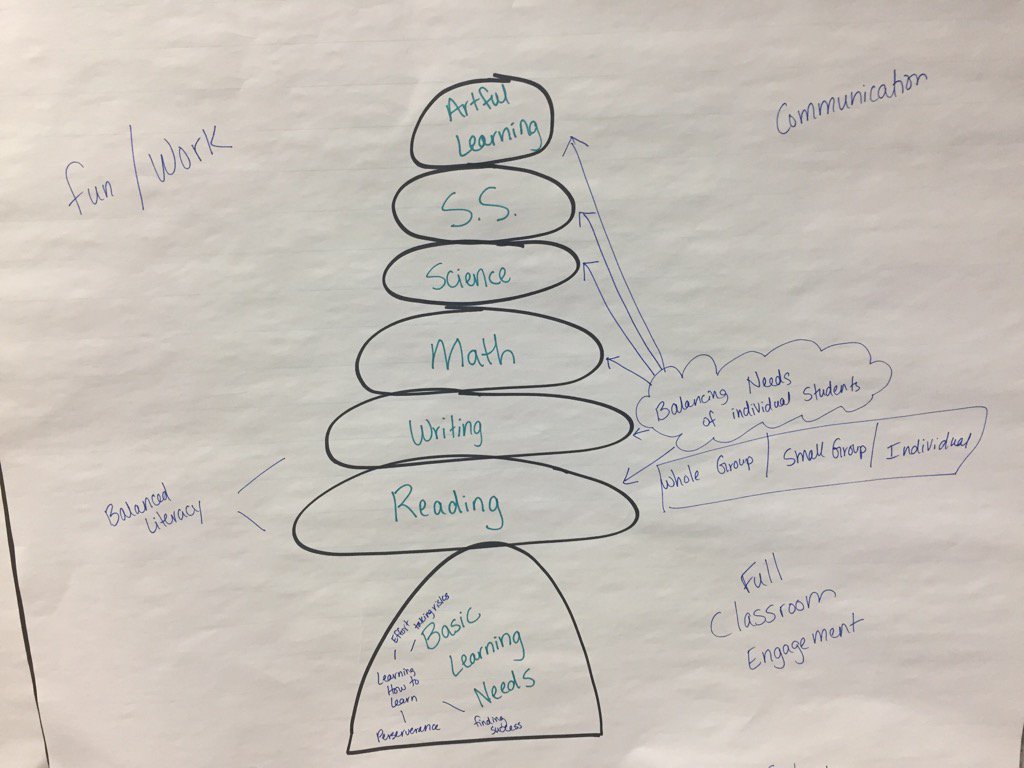 Fun / Work
Communication
Artful
Learning
S.S.
Science
Math
Writing
Reading
Balancing Needs
of individual Students
Whole Group | Small Group | Individual
Balanced
Literacy
Full
Classroom
Engagement
Effort
taking risks
Basic
Learning
Needs
Learning
How to
Learn
Perserverance
finding
success